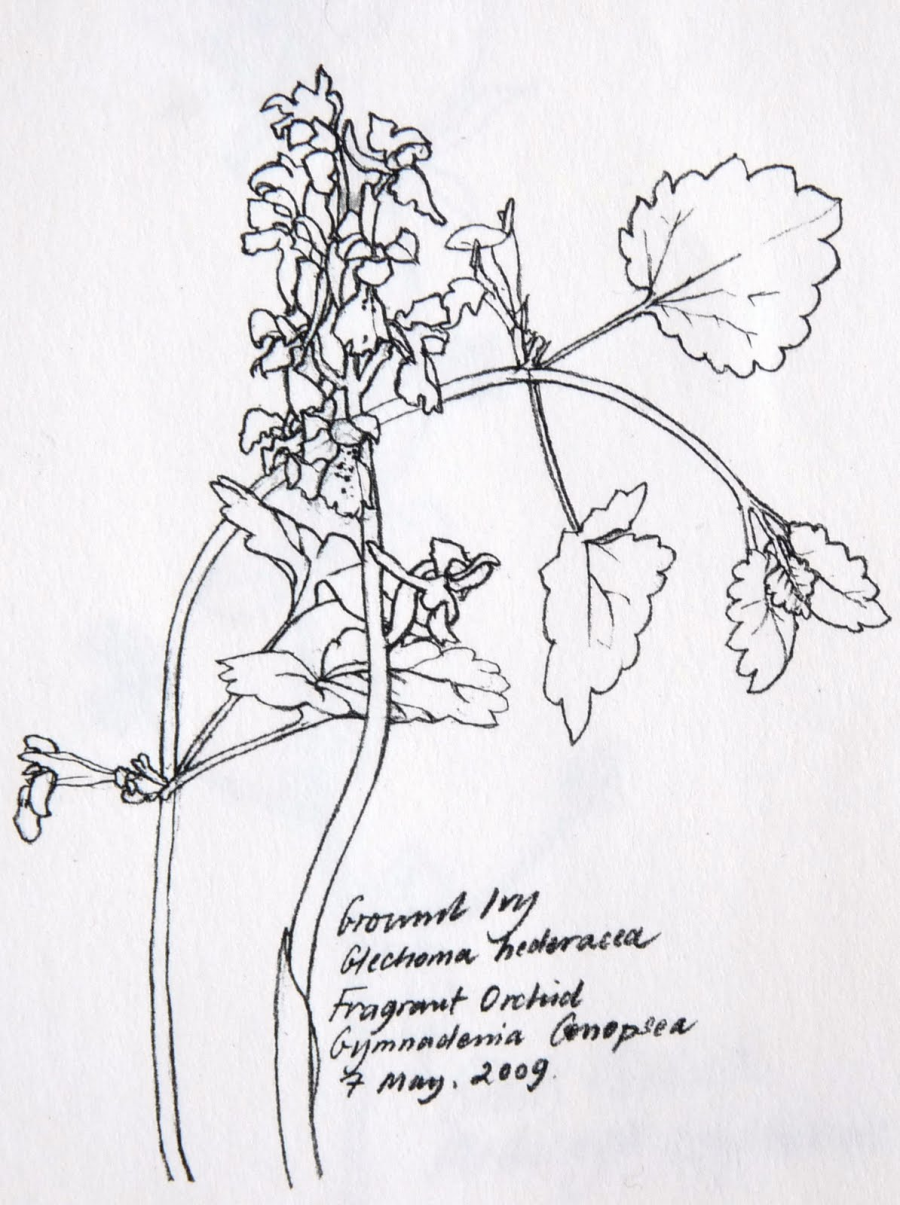 Ground Ivy
Glechoma hederacea
Fragrant Orchid
Gymnadenia Conopsea
7 May. 2009.